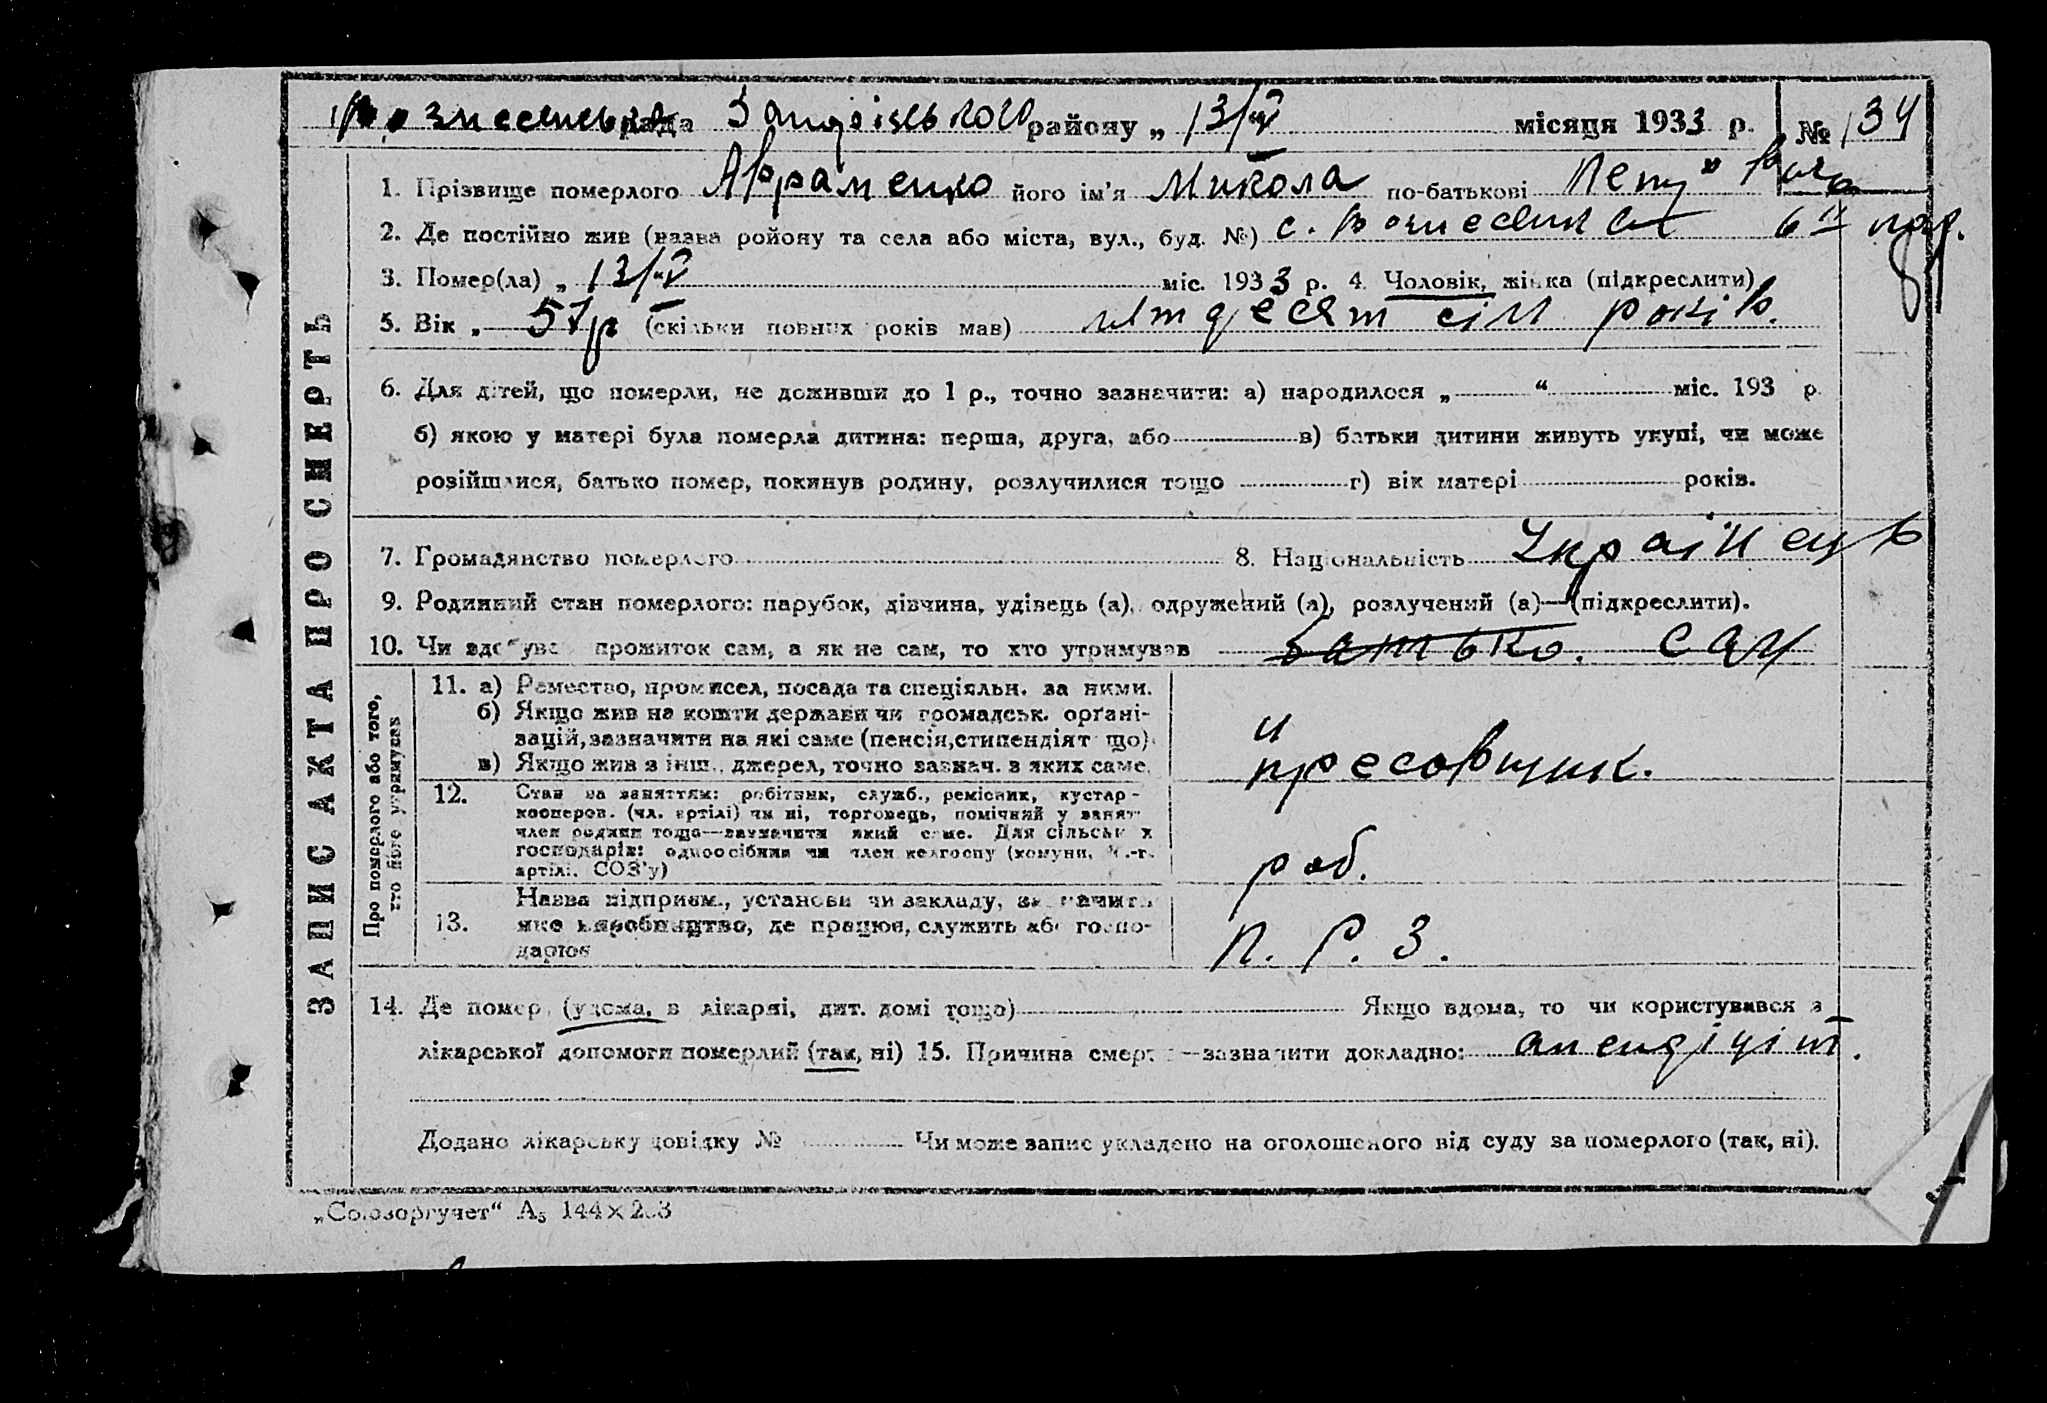 Вознесенська рада Запорізького району „ 13/IV місяця 1933 р. № 134
1. Прізвище померлого Авраменко його ім'я Микола по-батькові
2. Де постійно жив (назва ройону та села або міста, вул., буд. №) с. Вознесенка 6
3. Помер(ла) „ 13/IV міс. 1933 р. 4. Чоловік, жінка (підкреслити)
5. Вік „ 57 р (скільки повних років мав) пятдесят сім років.
6. Для дітей, що померли, не доживши до 1 р., точно зазначити: а) народилося „ “ міс. 193 р.
б) якою у матері була померла дитина: перша, друга, або в) батьки дитини живуть укупі, чи може
розійшлися, батько помер, покинув родину, розлучилися тощо г) вік матері років.
7. Громадянство померлого 8. Національність Українець
9. Родинний стан померлого: парубок, дівчина, удівець (а), одружений (а), розлучений (а)—(підкреслити).
10. Чи здобував прожиток сам, а як не сам, то хто утримував батько. сам
ЗАПИС АКТА ПРО СМЕРТЬ
Про померлого або того,
хто його утримував
11. а) Ремество, промисел, посада та спеціяльн. за ними.
б) Якщо жив на кошти держави чи громадськ. орґані-
зацій, зазначити на які саме (пенсія, стипендіят що).
в) Якщо жив з інш. джерел, точно зазнач. з яких саме.
пресовщик.
12. Стан за заняттям: робітник, служб., ремісник, кустар-
кооперов. (чл. артілі) чи ні, торговець, помічний у занят.
член родини тощо—зазначити який саме. Для сільськ х
господарів: одноосібник чи член колгоспу (комуни, с.-г.
артілі, СОЗ'у)
роб.
13. Назва підприєм., установи чи закладу, зазначити
яке виробництво, де працює, служить або госпо-
дарює
П. Р. З.
14. Де помер (удома, в лікарні, дит. домі тощо) Якщо вдома, то чи користувався з
лікарської допомоги померлий (так, ні) 15. Причина смерти—зазначити докладно: апендіціт.
Додано лікарську довідку № Чи може запис укладено на оголошеного від суду за померлого (так, ні).
„Союзоргучет“ А₅ 144×2.3